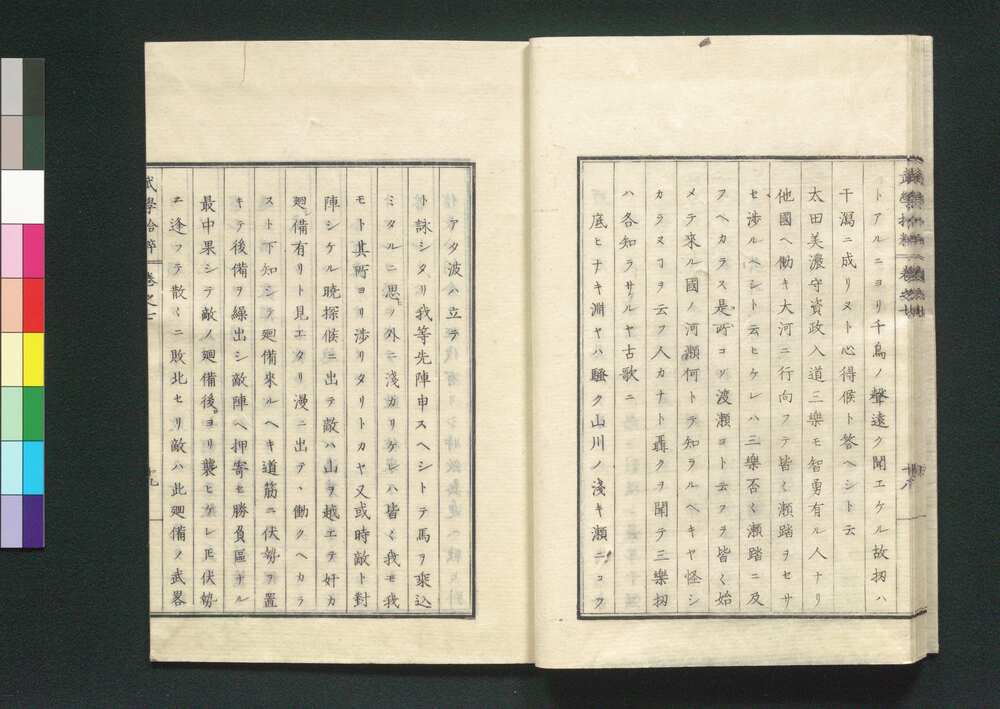 トアルニヨリ千鳥ノ聲遠ク聞エケル故扨ハ
干瀉ニ成リヌト心得候ト答ヘシト云
太田美濃守資政入道三樂モ智勇有ル人ナリ
他國ヘ働キ大河ニ行向フテ皆〻瀬踏ヲセサ
セ渉ルヘシト云ヒケレハ三樂否〻瀬踏ニ及
フヘカラス是所コソ渡瀬コト云フヲ皆〻始
メテ來ル國ノ河瀬何トテ知ラルヘキヤ怪シ
カラヌヿヲ云フ人カナト聶クヲ聞テ三樂扨
ハ各知ラサルヤ古歌ニ
底ヒナキ淵ヤハ騒ク山川ノ淺キ瀬ニコソ
アタ波ハ立テ
ト詠シタリ我等先陣申スヘシトテ馬ヲ乘込
ミタルニ思ノ外ニ淺カリケレハ皆〻我モ我
モト其所ヨリ渉リタリトカヤ又或時敵ト對
陣シケル曉探候ニ出テ敵ハ山ヲ越エテ奸カ
廻備有リト見エタリ漫ニ出テ、働クヘカラ
スト下知シテ廻備來ルヘキ道筋ニ伏勢ヲ置
キテ後備ヲ繰出シ敵陣ヘ押寄セ勝負區ナル
最中果シテ敵ノ廻備後ヨリ襲ヒケレ𪜈伏勢
ニ逢フテ散〻ニ敗北セリ敵ハ此廻備ノ武畧
武學拾粹 卷之七 十九